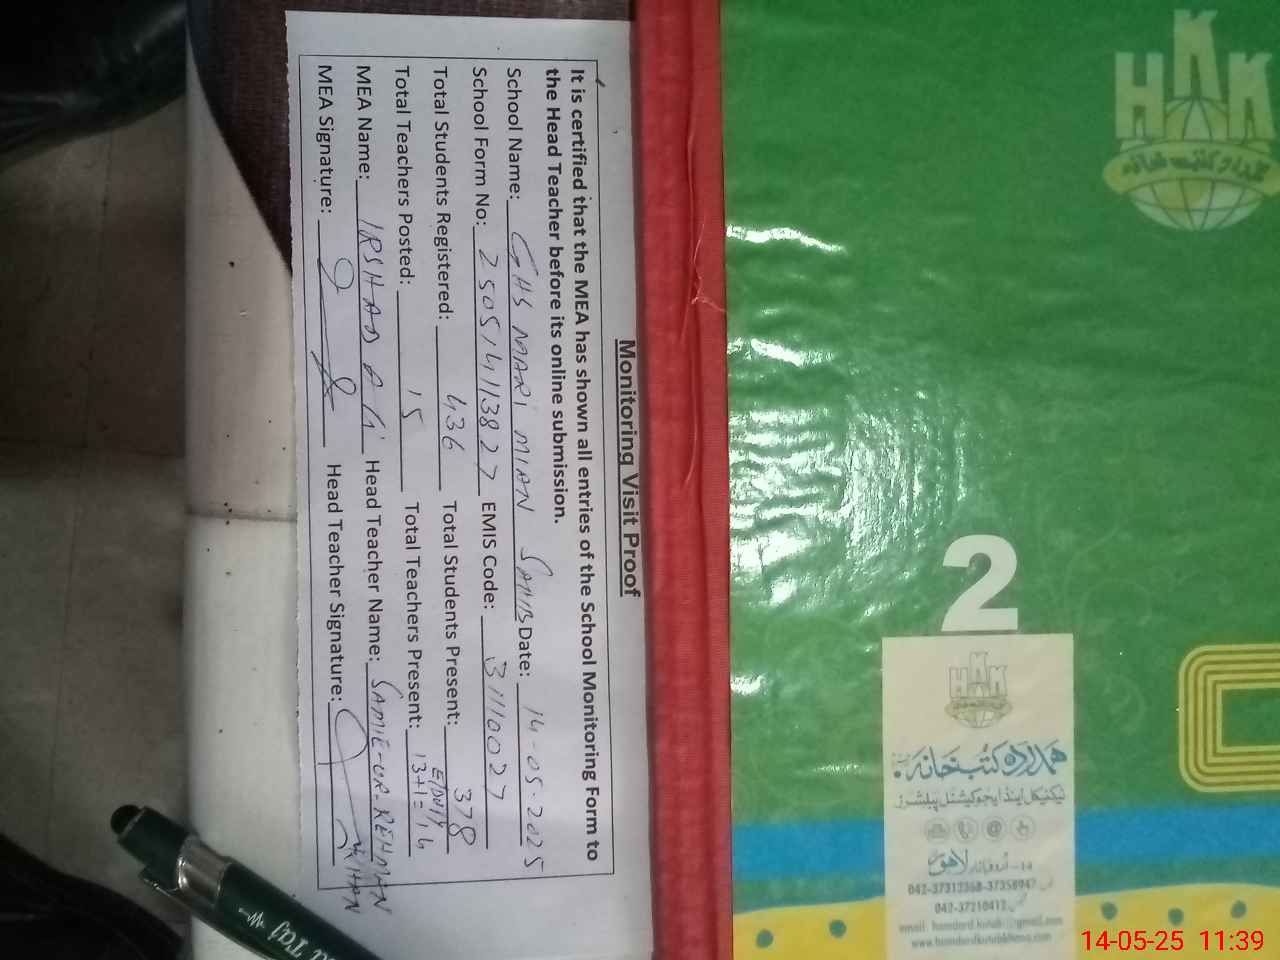 Monitoring Visit Proof
It is certified that the MEA has shown all entries of the School Monitoring Form to
the Head Teacher before its online submission.
School Name: GHS MARI MIAN SAHIB Date: 14-05-2025
School Form No: 25051411382 7 EMIS Code: 3111002 7
Total Students Registered: 436 Total Students Present: 378
Total Teachers Posted: 15 Total Teachers Present: E/Duty 13+1=14
MEA Name: IRSHAD ALI Head Teacher Name: SAMIE-UR-REHMAN KHAN
MEA Signature: Head Teacher Signature:
HKK
ہمدرد کتب خانہ
2
HKK
ہمدرد کتب خانہ
ٹیکنیکل اینڈ ایجوکیشنل پبلشرز
لاہور
042-37312368-37358947
042-37210412
www.hamdardkutabkhana.com
TAJ
14-05-25 11:39